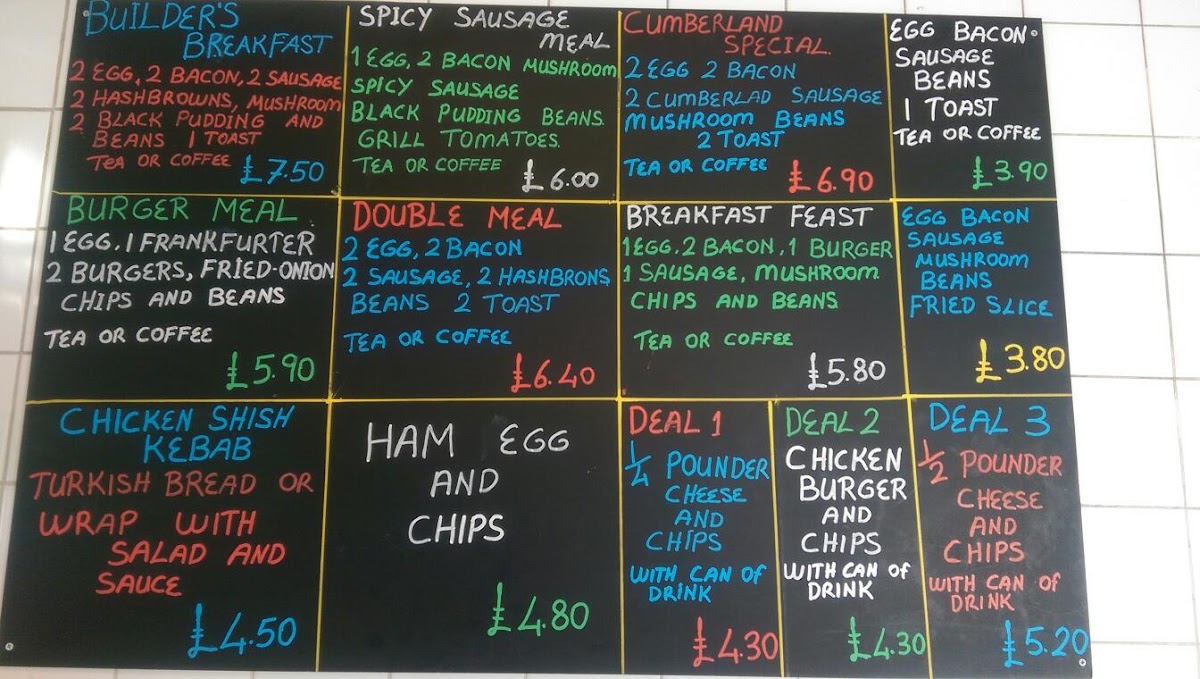 BUILDER'S
BREAKFAST
2 EGG, 2 BACON, 2 SAUSAGE
2 HASHBROWNS, MUSHROOM
2 BLACK PUDDING AND
BEANS 1 TOAST
TEA OR COFFEE £7.50
SPICY SAUSAGE
MEAL
1 EGG, 2 BACON MUSHROOM
SPICY SAUSAGE
BLACK PUDDING BEANS
GRILL TOMATOES.
TEA OR COFFEE £6.00
CUMBERLAND
SPECIAL.
2 EGG 2 BACON
2 CUMBERLAD SAUSAGE
MUSHROOM BEANS
2 TOAST
TEA OR COFFEE £6.90
EGG BACON
SAUSAGE
BEANS
1 TOAST
TEA OR COFFEE
£3.90
BURGER MEAL
1 EGG, 1 FRANKFURTER
2 BURGERS, FRIED-ONION
CHIPS AND BEANS
TEA OR COFFEE
£5.90
DOUBLE MEAL
2 EGG, 2 BACON
2 SAUSAGE, 2 HASHBRONS
BEANS 2 TOAST
TEA OR COFFEE
£6.40
BREAKFAST FEAST
1 EGG, 2 BACON, 1 BURGER
1 SAUSAGE, MUSHROOM
CHIPS AND BEANS
TEA OR COFFEE
£5.80
EGG BACON
SAUSAGE
MUSHROOM
BEANS
FRIED SLICE
£3.80
CHICKEN SHISH
KEBAB
TURKISH BREAD OR
WRAP WITH
SALAD AND
SAUCE
£4.50
HAM EGG
AND
CHIPS
£4.80
DEAL 1
1/4 POUNDER
CHEESE
AND
CHIPS
WITH CAN OF
DRINK
£4.30
DEAL 2
CHICKEN
BURGER
AND
CHIPS
WITH CAN OF
DRINK
£4.30
DEAL 3
1/2 POUNDER
CHEESE
AND
CHIPS
WITH CAN OF
DRINK
£5.20